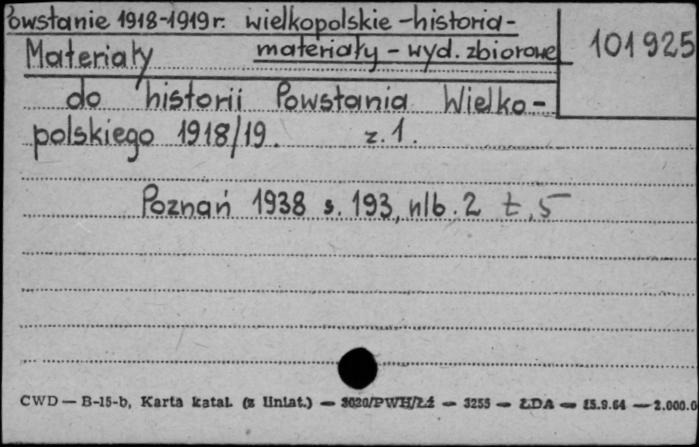 Powstanie 1918-1919 r. wielkopolskie - historia -
materiały - wyd. zbiorowe
101925
Materiały
do historii Powstania Wielko-
polskiego 1918/19. z. 1.
Poznań 1938 s. 193, nlb. 2 t. 5
CWD — B-15-b, Karta katal. (z liniat.) — 3020/PWH/Łź — 3255 — ŁDA — 15.9.64 — 2.000.0